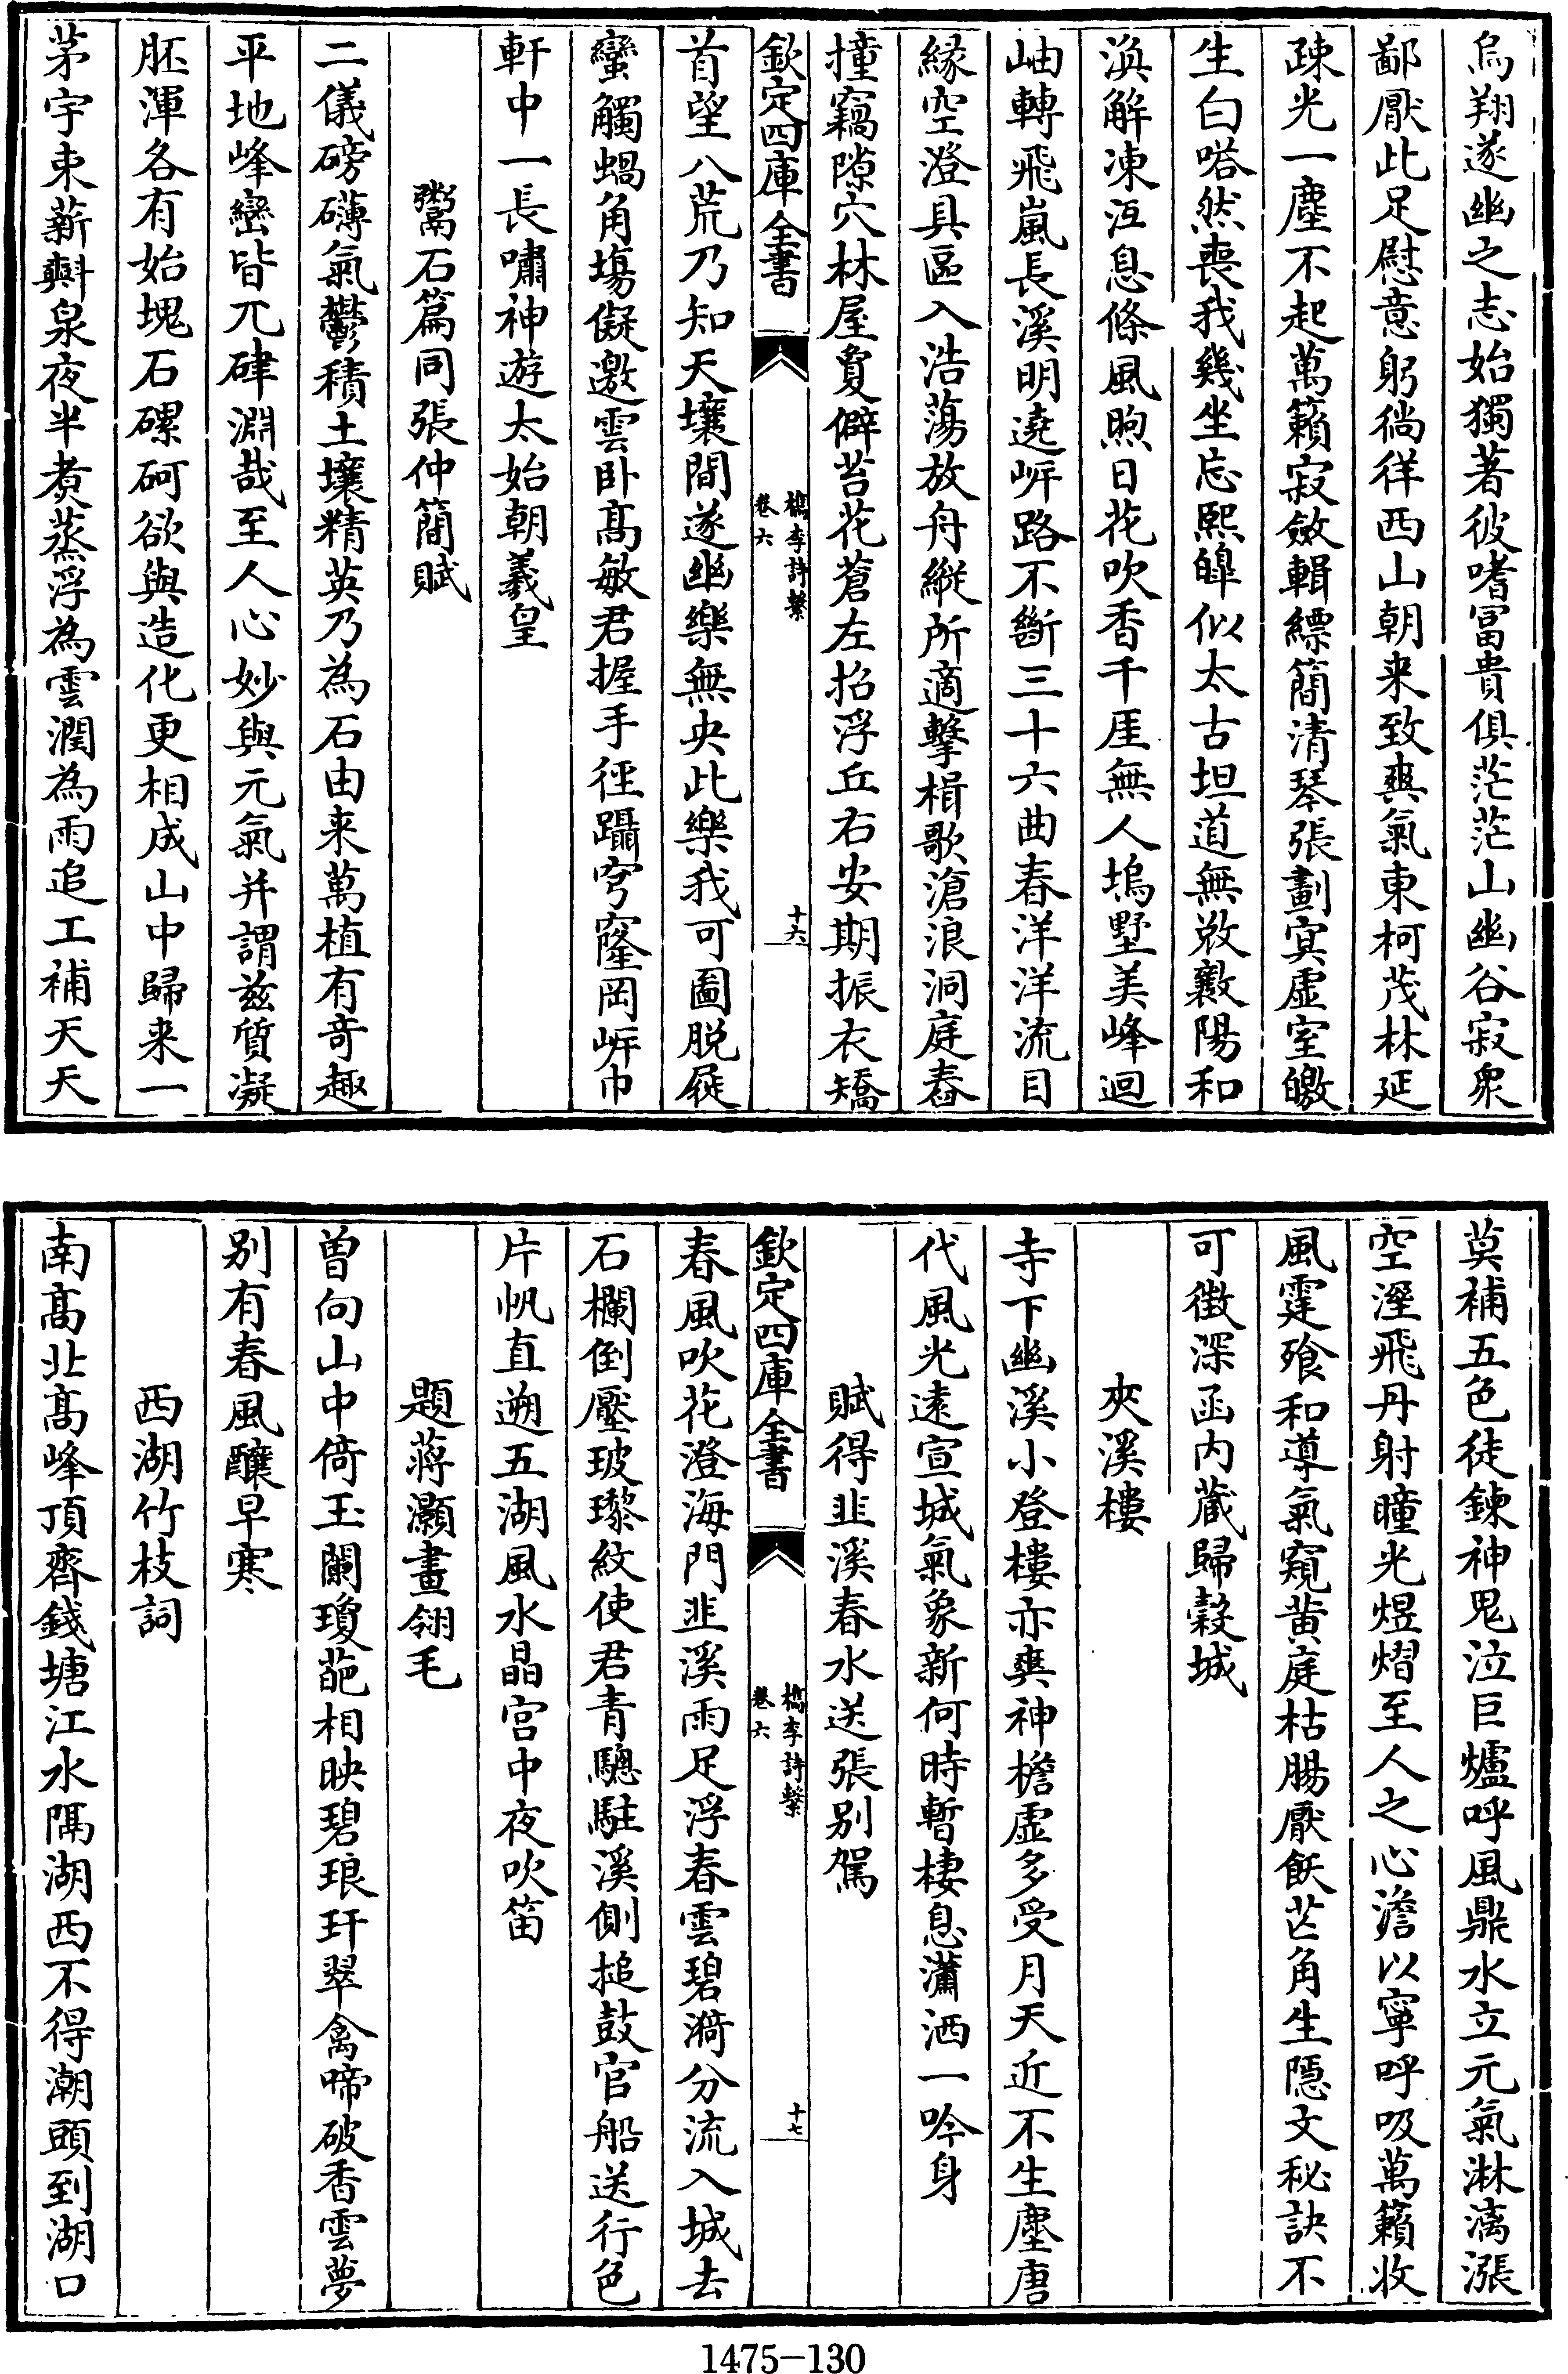 烏翔遂幽之志始獨著彼嗜冨貴俱茫茫山幽谷寂衆
鄙厭此足慰意躬徜徉西山朝来致爽氣東柯茂林延
疎光一塵不起萬籟寂斂輯縹簡清琴張劃㝠虚室皦
生白嗒然喪我幾坐忘熙皥似太古坦道無敚斁陽和
渙解凍沍息條風煦日花吹香千厓無人塢墅美峰迴
岫轉飛嵐長溪明遶㟁路不斷三十六曲春洋洋流目
縁空澄具區入浩蕩放舟縱所適擊楫歌滄浪洞庭舂
撞竊隙穴林屋敻僻苔花蒼左招浮丘右安期振衣矯
欽定四庫全書
檇李詩繫
卷六
十六
首望八荒乃知天壤間遂幽樂無央此樂我可圖脱屣
蠻觸蝸角塲儗邀雲卧髙敏君握手徑躡穹窿岡㟁巾
軒中一長嘯神遊太始朝羲皇
鬻石篇同張仲簡賦
二儀磅礴氣鬱積土壤精英乃為石由来萬植有竒趣
平地峰巒皆兀硉淵哉至人心妙與元氣并謂兹質凝
胚渾各有始塊石磥砢欲與造化更相成山中歸来一
茅宇束薪㪺泉夜半煮蒸浮為雲潤為雨追工補天天
莫補五色徒鍊神鬼泣巨爐呼風鼎水立元氣淋漓漲
空溼飛丹射瞳光煜熠至人之心澹以寧呼吸萬籟收
風霆飱和導氣窺黄庭枯腸厭飫芒角生隠文秘訣不
可徴深函内蔵歸穀城
夾溪樓
寺下幽溪小登樓亦爽神檐虚多受月天近不生塵唐
代風光逺宣城氣象新何時暫棲息瀟洒一吟身
賦得韭溪春水送張别駕
欽定四庫全書
檇李詩繫
卷六
十七
春風吹花澄海門韭溪雨足浮春雲碧漪分流入城去
石欄倒壓玻瓈紋使君青驄駐溪側搥鼓官船送行色
片帆直遡五湖風水晶宫中夜吹笛
題蔣灝畫翎毛
曽向山中倚玉闌瓊葩相映碧琅玕翠禽啼破香雲夢
别有春風釀早寒
西湖竹枝詞
南髙北髙峰頂齊錢塘江水隔湖西不得潮頭到湖口
1475-130